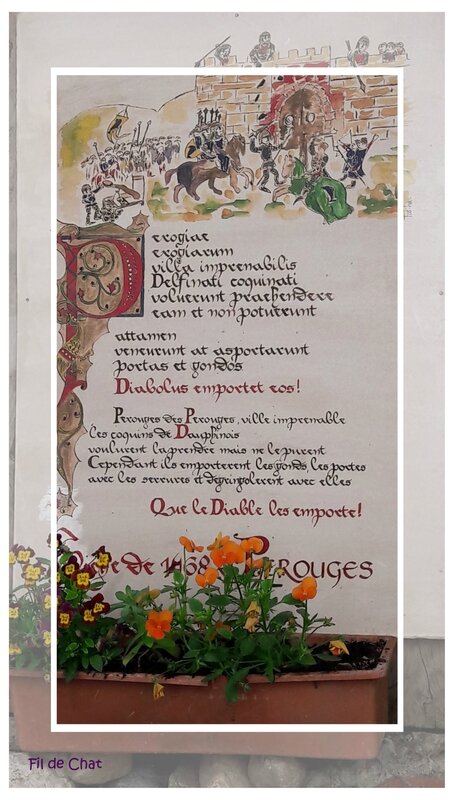 Perogiae
erogiarum
villa imprenabilis
Delfinati coquinati
voluerunt praehendere
eam et non potuerunt
attamen
veneurunt at asportarunt
portas et gondos
Diabolus emportet eos!
Perouges des Perouges, ville imprenable
les coquins de Dauphinois
voulurent la prendre mais ne le purent
Cependant ils emporterent les gonds les portes
avec les serrures et dégringolerent avec elles
Que le Diable les emporte!
de 1468 PEROUGES
Fil de Chat